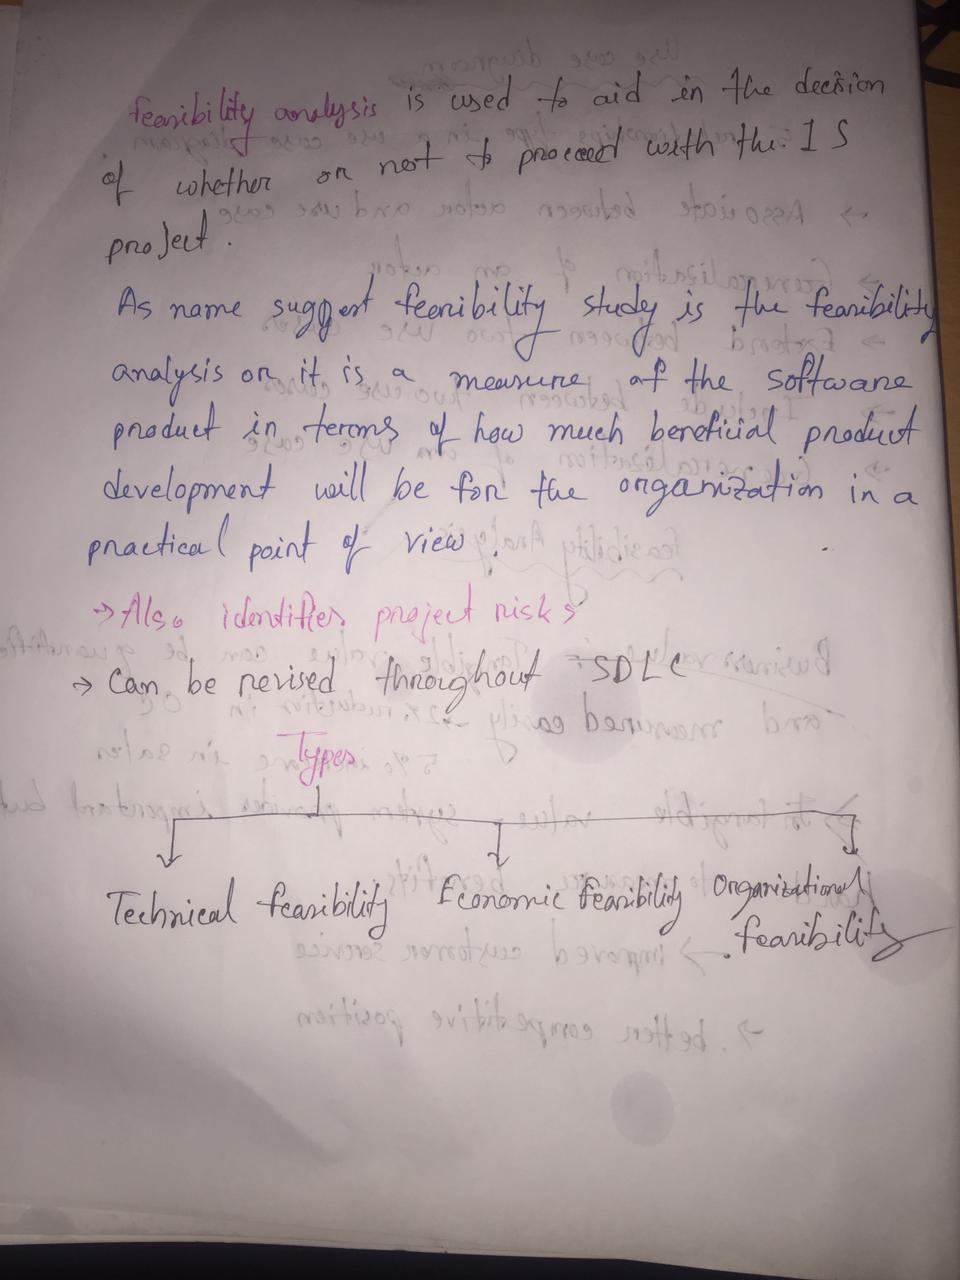 feasibility analysis is used to aid in the decision
of whether or not to proceed with the IS
project.
As name suggest feasibility study is the feasibility
analysis or it is a measure of the software
product in terms of how much beneficial product
development will be for the organization in a
practical point of view.
→ Also identifies project risks
→ Can be revised throughout SDLC
Types
Technical feasibility Economic feasibility Organizational
feasibility